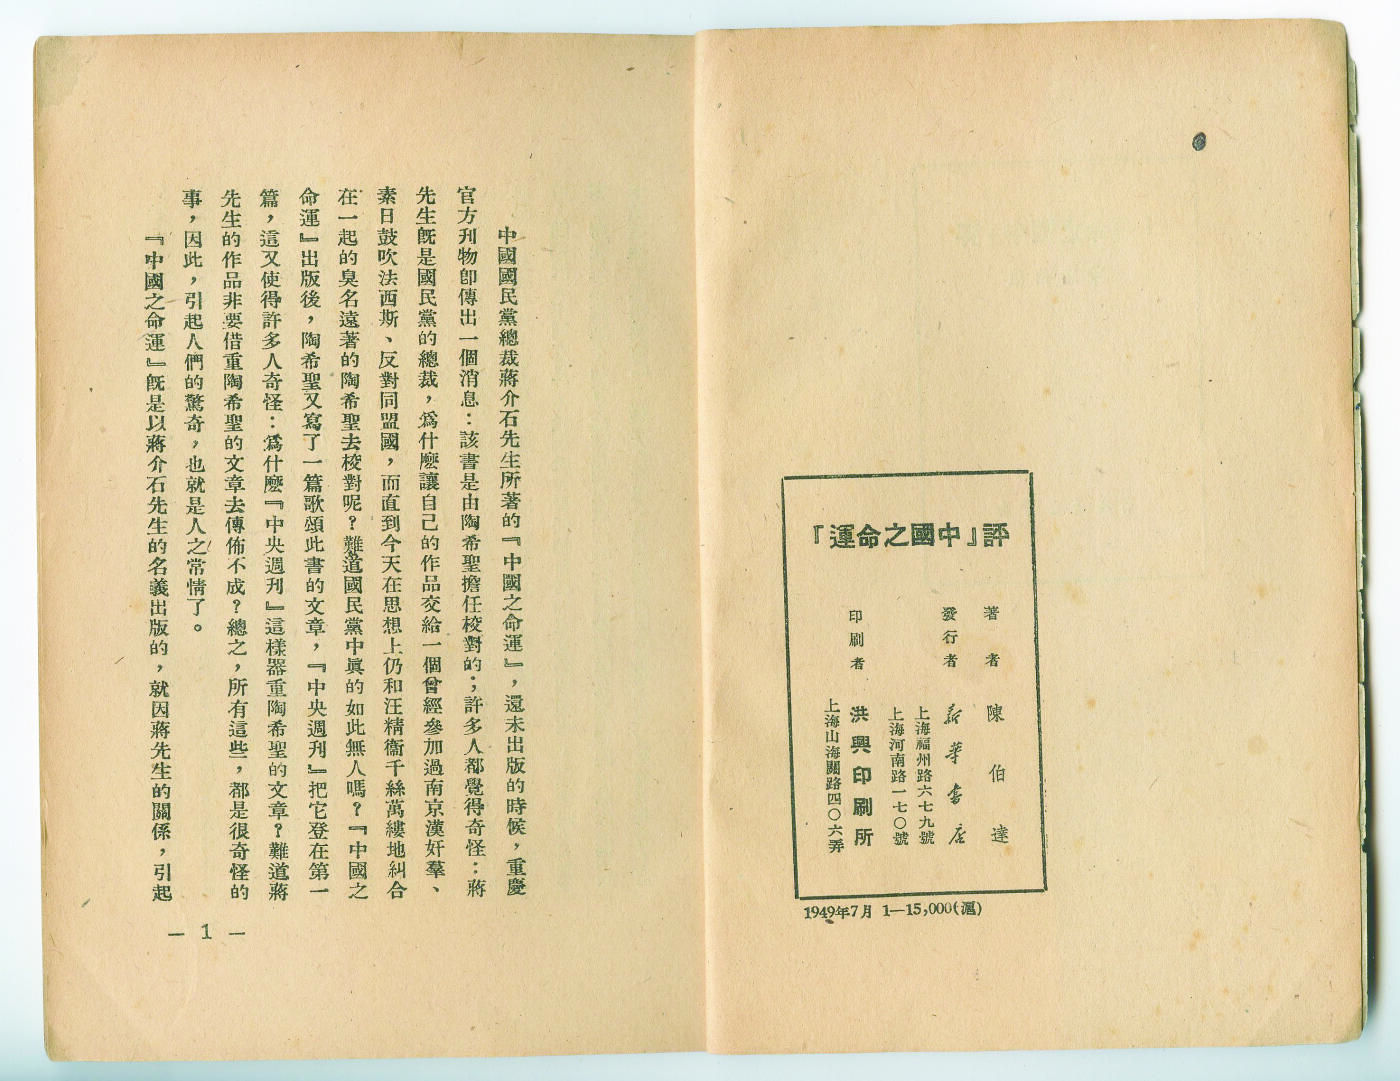 評『中國之命運』
著者 陳伯達
發行者 新華書店
上海福州路六七九號
上海河南路一七〇號
印刷者 洪興印刷所
上海山海關路四〇六弄
1949年7月 1—15,000(滬)
中國國民黨總裁蔣介石先生所著的『中國之命運』，還未出版的時候，重慶
官方刊物卽傳出一個消息：該書是由陶希聖擔任校對的；許多人都覺得奇怪：蔣
先生旣是國民黨的總裁，爲什麽讓自己的作品交給一個曾經參加過南京漢奸羣、
素日鼓吹法西斯、反對同盟國，而直到今天在思想上仍和汪精衞千絲萬縷地糾合
在一起的臭名遠著的陶希聖去校對呢？難道國民黨中眞的如此無人嗎？『中國之
命運』出版後，陶希聖又寫了一篇歌頌此書的文章，『中央週刊』把它登在第一
篇，這又使得許多人奇怪：爲什麽『中央週刊』這樣器重陶希聖的文章？難道蔣
先生的作品非要借重陶希聖的文章去傳佈不成？總之，所有這些，都是很奇怪的
事，因此，引起人們的驚奇，也就是人之常情了。
『中國之命運』旣是以蔣介石先生的名義出版的，就因蔣先生的關係，引起
— 1 —